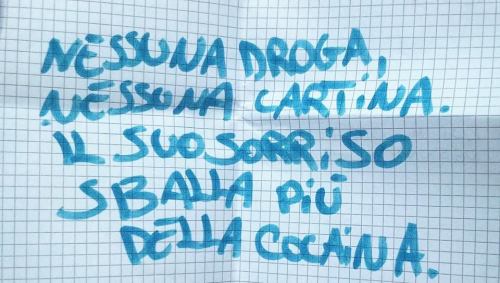 NESSUNA DROGA,
NESSUNA CARTiNA.
IL SUO SORRiSO
SBALLA PiÙ
DELLA COCAiNA.